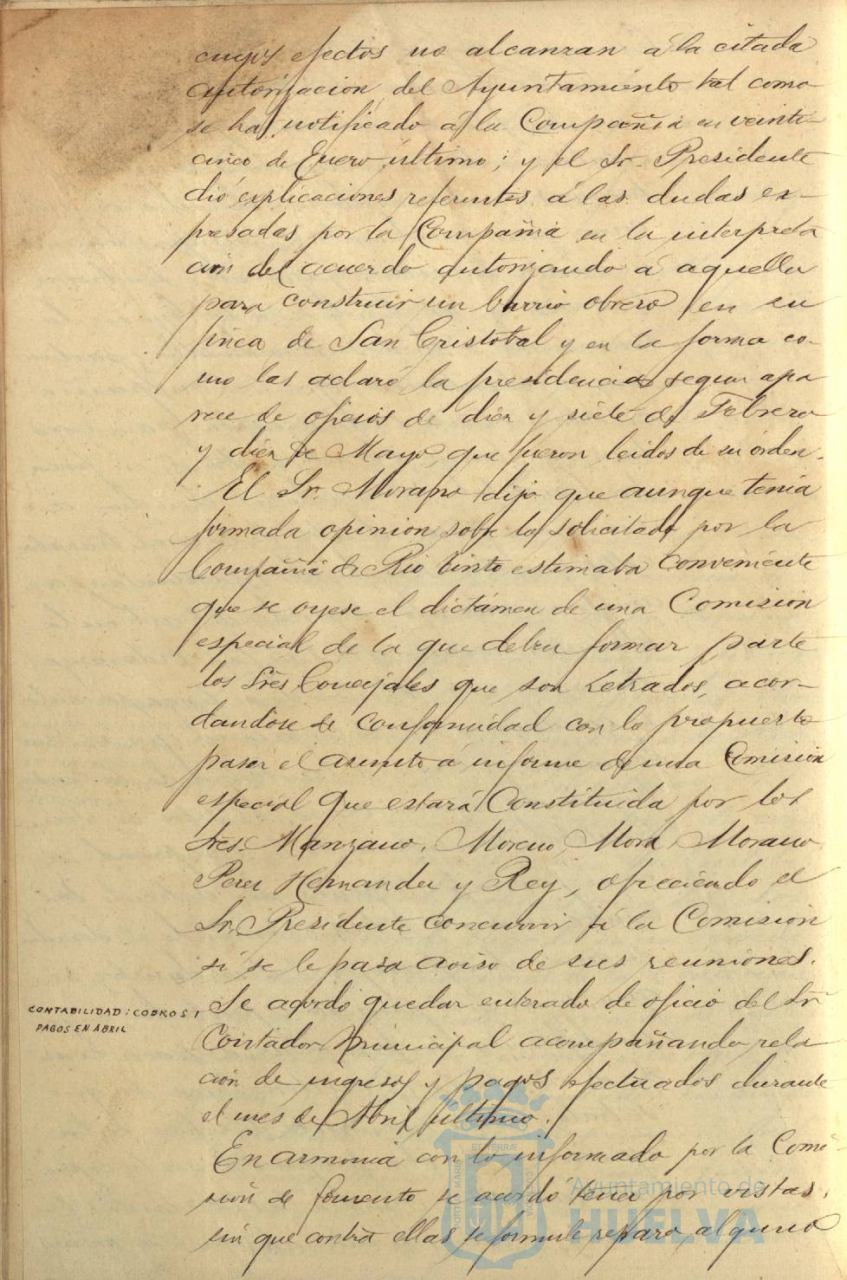 cuyos efectos no alcanzan á la citada
autorizacion del Ayuntamiento tal como
se ha notificado á la Compañia en veinte
cinco de Enero último; y el Sr. Presidente
dió esplicaciones referentes á las dudas ex-
presadas por la Compañia en la interpreta
ción del acuerdo autorizando á aquella
para construir un barrio obrero en su
finca de San Cristobal y en la forma co-
mo las aclaró la presidencia segun apa
rece de oficios de diez y siete de Febrero
y diez de Mayo, que fueron leidos de su órden.
El Sr. Morano dijo que aunque tenia
formada opinion sobre lo solicitado por la
Compañia de Rio tinto estimaba conveniente
que se oyese el dictámen de una Comision
especial de la que deben formar parte
los Sres Concejales que son Letrados, acor-
dandose de conformidad con lo propuesto
pasar el asunto á informe de una Comision
especial que estará constituida por los
Sres. Manzano, Moreno, Mora, Morano,
Perez Hernandez y Rey, ofreciendo el
Sr. Presidente concurrir á la Comision
si se le pasa aviso de sus reuniones.
CONTABILIDAD: COBROS Y
PAGOS EN ABRIL
Se acordó quedar enterado de oficio del Sr
Contador Municipal acompañando rela
ción de ingresos y pagos efectuados durante
el mes de Abril último.
En armonia con lo informado por la Comi-
sión de fomento se acordó tener por vistas,
sin que contra ellas se formule reparo alguno
Ayuntamiento de
HUELVA